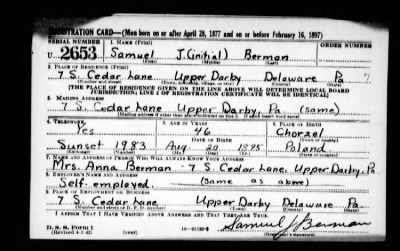 REGISTRATION CARD—(Men born on or after April 28, 1877 and on or before February 16, 1897)
SERIAL NUMBER 1. NAME (Print) ORDER NUMBER
U 2653 Samuel J.(initial) Berman
(First) (Middle) (Last)
2. PLACE OF RESIDENCE (Print)
7 S. Cedar Lane Upper Darby Delaware Pa
[THE PLACE OF RESIDENCE GIVEN ON THE LINE ABOVE WILL DETERMINE LOCAL BOARD
JURISDICTION; LINE 2 OF REGISTRATION CERTIFICATE WILL BE IDENTICAL]
3. MAILING ADDRESS
7 S. Cedar Lane Upper Darby, Pa (same)
[Mailing address if other than place indicated on line 2. If same insert word same]
4. TELEPHONE 5. AGE IN YEARS 6. PLACE OF BIRTH
Yes 46 Chorzel
DATE OF BIRTH
Sunset 1983 Aug. 20 1895 Poland
(Exchange) (Number) (Mo.) (Day) (Yr.) (State or country)
7. NAME AND ADDRESS OF PERSON WHO WILL ALWAYS KNOW YOUR ADDRESS
Mrs. Anna Berman 7 S. Cedar Lane, Upper Darby, Pa
8. EMPLOYER'S NAME AND ADDRESS
Self-employed (same as above)
9. PLACE OF EMPLOYMENT OR BUSINESS
7 S. Cedar Lane Upper Darby Delaware Pa
(Number and street or R. F. D. number) (Town) (County) (State)
I AFFIRM THAT I HAVE VERIFIED ABOVE ANSWERS AND THAT THEY ARE TRUE.
D. S. S. Form 1
(Revised 4-1-42) (over) Samuel J. Berman